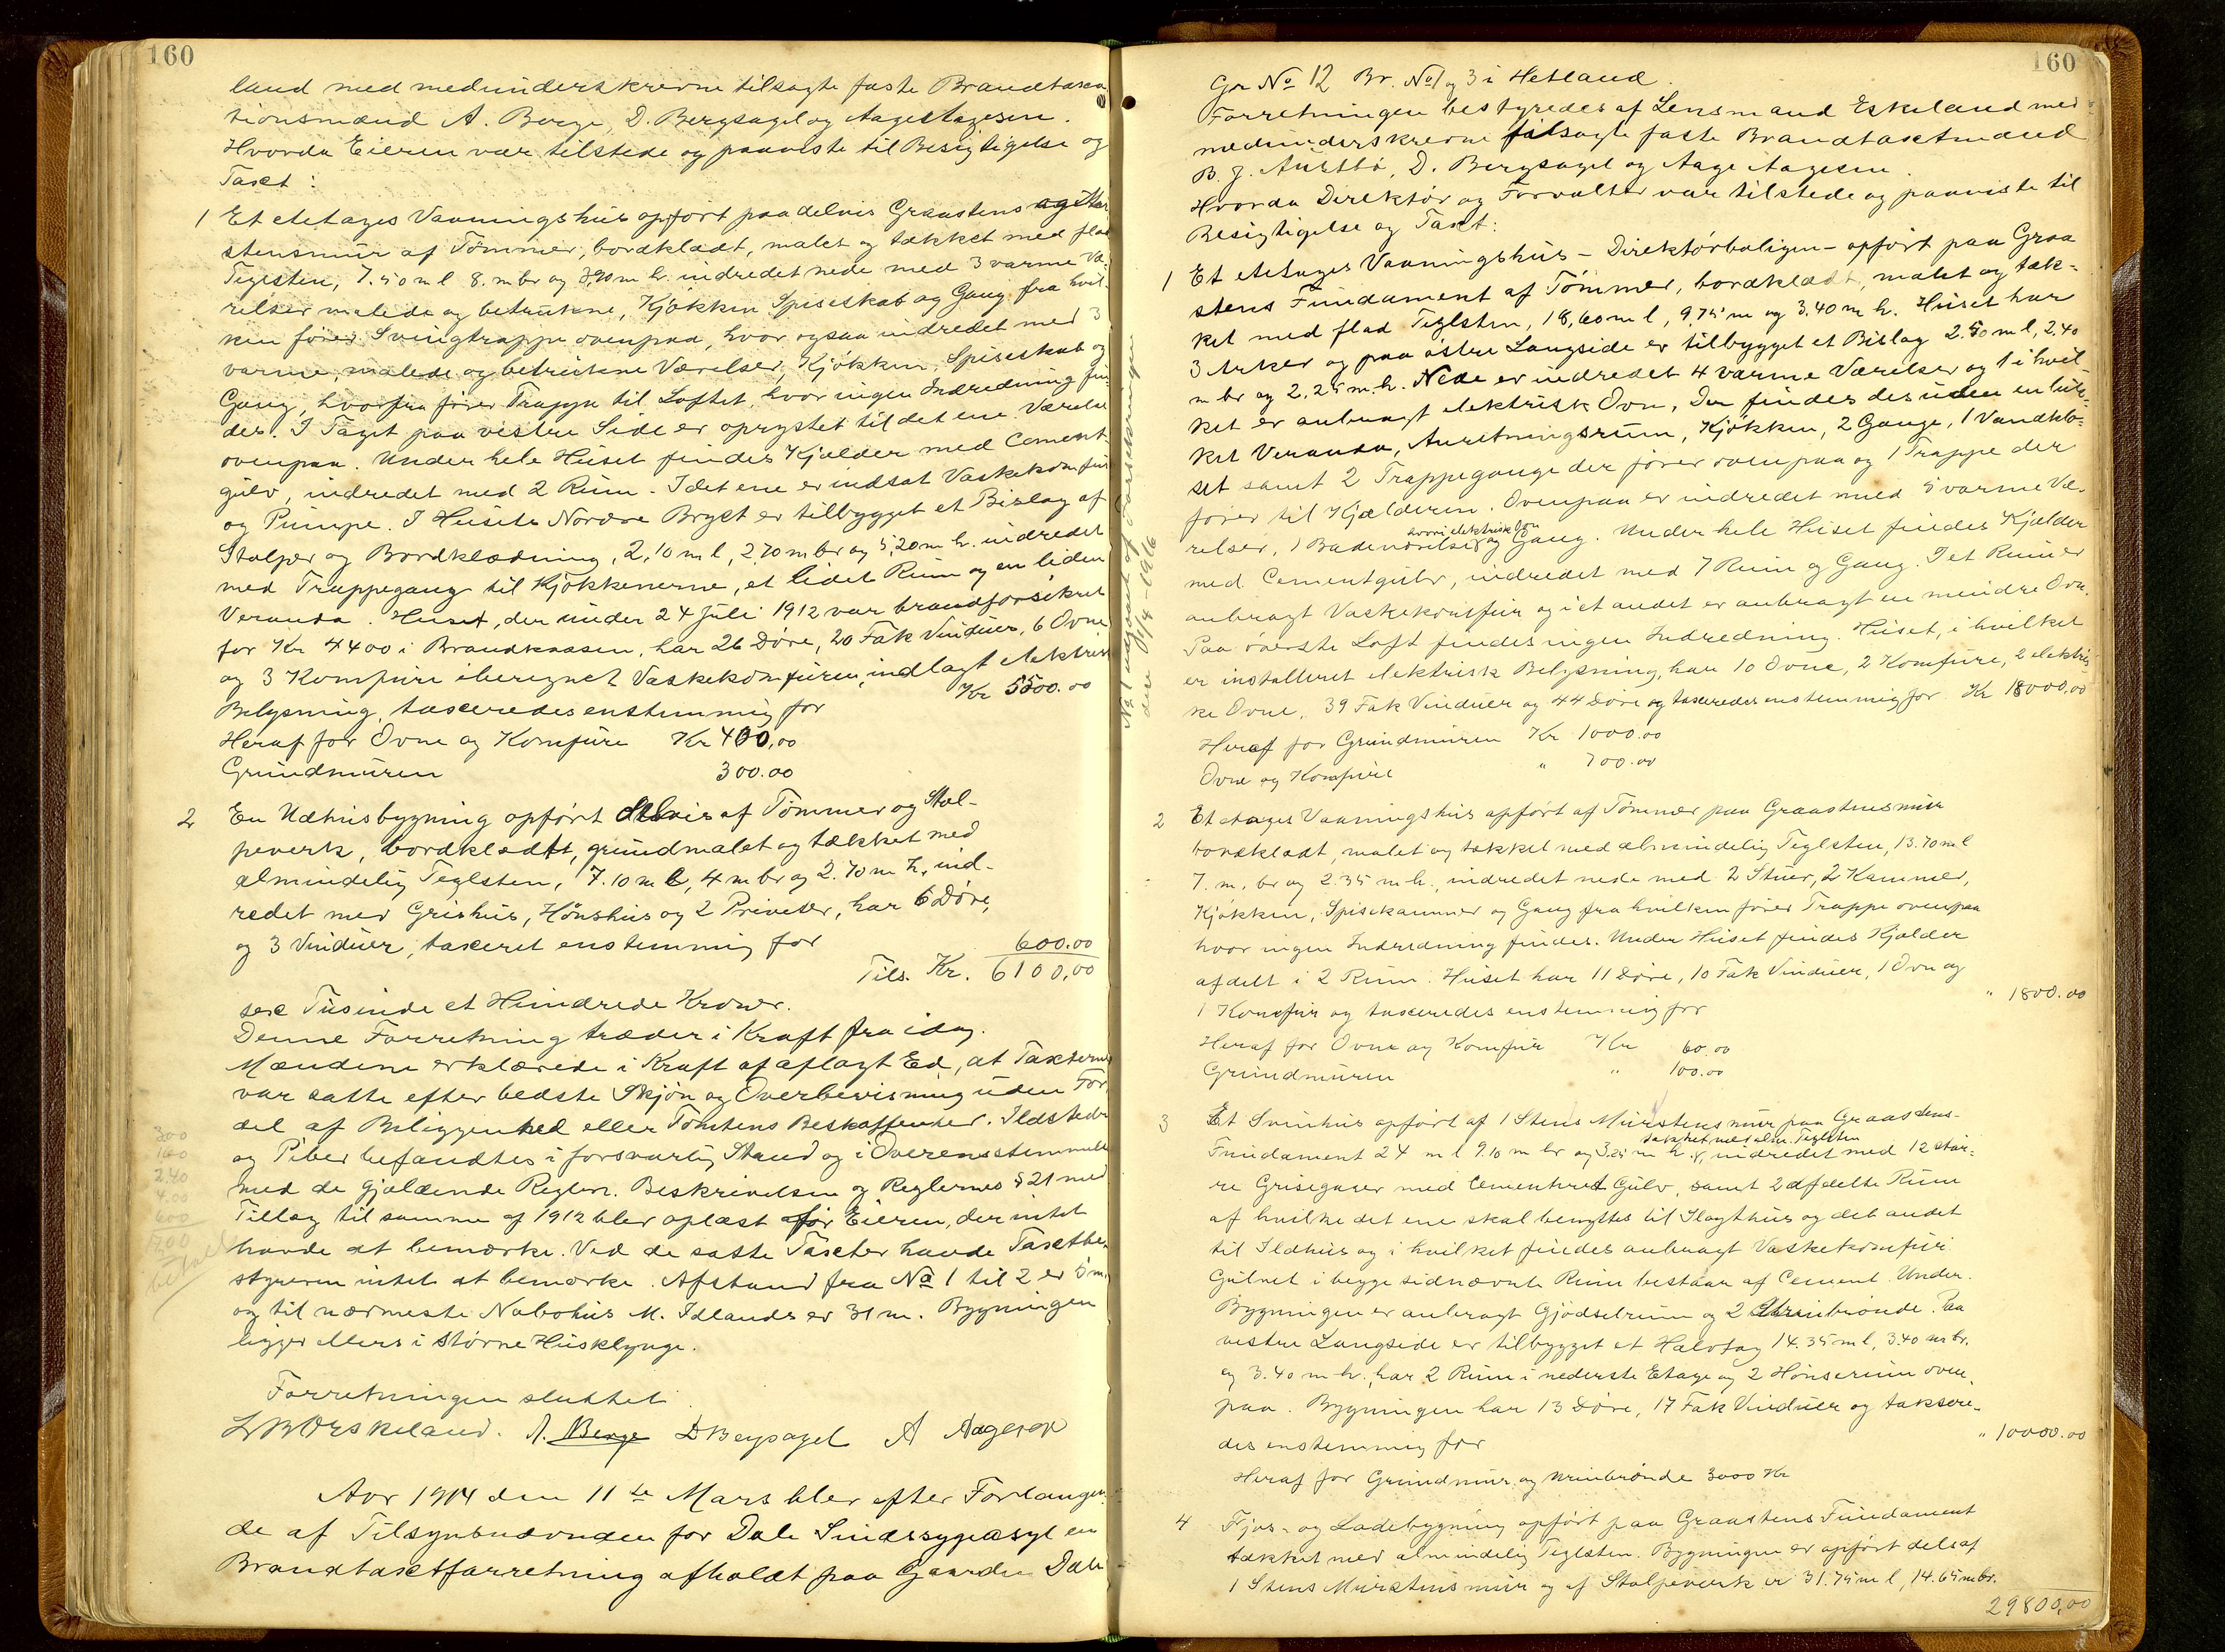 160
land med medunderskrevne tilsagte faste Brandtaxa
tionsmænd A. Berge, D. Bergsagel og Aage Aagesen.
Hvorda Eieren var tilstede og paaviste til Besigtigelse og
Taxt:
1 Et etetages Vaaningshus opført paa delvis Graastens og Mur
stensmur af Tømmer, bordklædt, malet og tækket med flad
Teglsten, 7.50 m l 8. m br og 7,90 m h. indredet nede med 3 varme Væ-
relser malede og betrukne, Kjøkken Spiseskab og Gang fra hvil-
ken fører Svingtrappe ovenpaa, hvor ogsaa indredet med 3
varme, malede og betrukne Værelser, Kjøkken, Spiseskab og
Gang, hvorfra fører Trappe til Loftet, hvor ingen Indredning fin-
des. I Taget paa vestre Side er oprystet til det ene Værelse
ovenpaa. Under hele Huset findes Kjælder med Cement-
gulv, indredet med 2 Rum. I det ene er indsat Vaskekomfur
og Pumpe. I Husets Nordre Bryst er tilbygget et Bislag af
Stolper og Bordklædning, 2,10 m l, 2,70 m br og 5,20 m h. indredet
med Trappegang til Kjøkkenerne, et lidet Rum og en liden
Veranda. Huset, der under 24 Juli 1912 var brandforsikret
for Kr 4400 i Brandkassen, har 26 Døre, 20 Fak Vinduer, 6 Ovne
og 3 Komfure iberegnet Vaskekomfuren, indlagt elektrisk
Belysning, taxeredes enstemmig for Kr 5500.00
Heraf for Ovne og Komfure Kr 400,00
Grundmuren 300.00
2 En Udhusbygning opført delvis af Tømmer og Stol-
peverk, bordklædt, grundmalet og tækket med
almindelig Teglsten, 7.10 m l, 4 m br og 2.70 m h, ind-
redet med Grishus, Hønshus og 2 Priveter, har 6 Døre,
og 3 Vinduer, taxeret enstemmig for 600.00
Tils. Kr. 6100,00
sex Tusinde et Hundrede Kroner.
Denne Forretning træder i Kraft fra idag.
Mændene erklærede i Kraft af aflagt Ed, at Taxterne
var satte efter bedste Skjøn og Overbevisning uden For-
del af Beliggenhed eller Tomtens Beskaffenhed. Ildsteder
og Piber befandtes i forsvarlig Stand og i Overensstemmelse
med de gjældende Regler. Beskrivelsen og Reglernes § 21 med
Tillæg til samme af 1912 blev oplæst for Eieren, der intet
havde at bemærke. Ved de satte Taxter havde Taxtbe-
styreren intet at bemærke. Afstand fra No 1 til 2 er 5 m.
og til nærmeste Nabohus M. Idlands er 31 m. Bygningen
ligger ellers i større Husklynge.
Forretningen sluttet.
300
100
2.40
4.00
600
1700
betalt
A. Berge D Bergsagel A Aagesen
Aar 1914 den 11te Mars blev efter Forlangen-
de af Tilsynsnævnden for Dale Sindssygeasyl en
Brandtaxtforretning afholdt paa Gaarden Dale
No 1 udgaat af Forsikringen
den 8/4-1916
160
Gr No 12 Br. No 1 og 3 i Hetland.
Forretningen bestyredes af Lensmand Eskeland med
medunderskrevne tilsagte faste Brandtaxtmænd
B. J. Austbø, D. Bergsagel og Aage Aagesen.
Hvorda Direktør og Forvalter var tilstede og paaviste til
Besigtigelse og Taxt:
1 Et etetages Vaaningshus - Direktørboligen - opført paa Graa
stens Fundament af Tømmer, bordklædt, malet og tæk-
ket med flad Teglsten, 18,60 m l, 9,75 m og 3.40 m h. Huset har
3 Arker og paa østre Langside er tilbygget et Bislag 2.50 m l, 2.40
m br og 2,25 m h. Nede er indredet 4 varme Værelser og 1 i hvil-
ket er anbragt elektrisk Ovn, Der findes desuden en luk-
ket Veranda, Anretningsrum, Kjøkken, 2 Gange, 1 Vandklo-
set samt 2 Trappegange der fører ovenpaa og 1 Trappe der
fører til Kjælderen. Ovenpaa er indredet med 5 varme Væ-
hvori elektrisk Ovn
relser, 1 Badeværelse og Gang. Under hele Huset findes Kjælder
med Cementgulv, indredet med 7 Rum og Gang. I et Rum er
anbragt Vaskekomfur og i et andet er anbragt en mindre Ovn.
Paa øverste Loft findes ingen Indredning. Huset, i hvilket
er installeret elektrisk Belysning, har 10 Ovne, 2 Komfure, 2 elektris
ke Ovne, 39 Fak Vinduer og 44 Døre og taxeredes enstemmig for Kr 18000,00
Heraf for Grundmuren Kr 1000.00
Ovne og Komfure " 700.00
2 Et etages Vaaningshus opført af Tømmer paa Graastensmur
bordklædt, malet og tækket med almindelig Teglsten, 13.70 m l
7. m. br og 2.35 m h., indredet nede med 2 Stuer, 2 Kammer,
Kjøkken, Spisekammer og Gang fra hvilken fører Trappe ovenpaa
hvor ingen Indredning findes. Under Huset findes Kjælder
afdelt i 2 Rum. Huset har 11 Døre, 10 Fak Vinduer, 1 Ovn og
1 Komfur og taxeredes enstemmig for " 1800.00
Heraf for Ovne og Komfur Kr 60.00
Grundmuren " 100.00
3 Et Svinhus opført af 1 Stens Murstensmur paa Graastens-
tækket med alm. Teglsten
Fundament 24 m l 9.10 m br og 3.25 m h., indredet med 12 stør-
re Grisegaser med Cementeret Gulv, samt 2 afdelte Rum
af hvilke det ene skal benyttes til Slagthus og det andet
til Ildhus og i hvilket findes anbragt Vaskekomfur.
Gulvet i begge sidnævnte Rum bestaar af Cement. Under
Bygningen er anbragt Gjødselrum og 2 Urinbrønde. Paa
vestre Langside er tilbygget et Halvtag 14.35 m l, 3.40 m br.
og 3.40 m h., har 2 Rum i nederste Etage og 2 Hønserum oven-
paa. Bygningen har 13 Døre, 17 Fak Vinduer og taksere-
des enstemmig for " 10000.00
Heraf for Grundmur og Urinbrønde 3000 Kr
4 Fjøs- og Ladebygning opført paa Graastens Fundament
tækket med almindelig Teglsten. Bygningen er opført dels af
1 Stens Murstensmur og af Stolpeverk er 31.75 m l, 14.65 m br.
29800,00